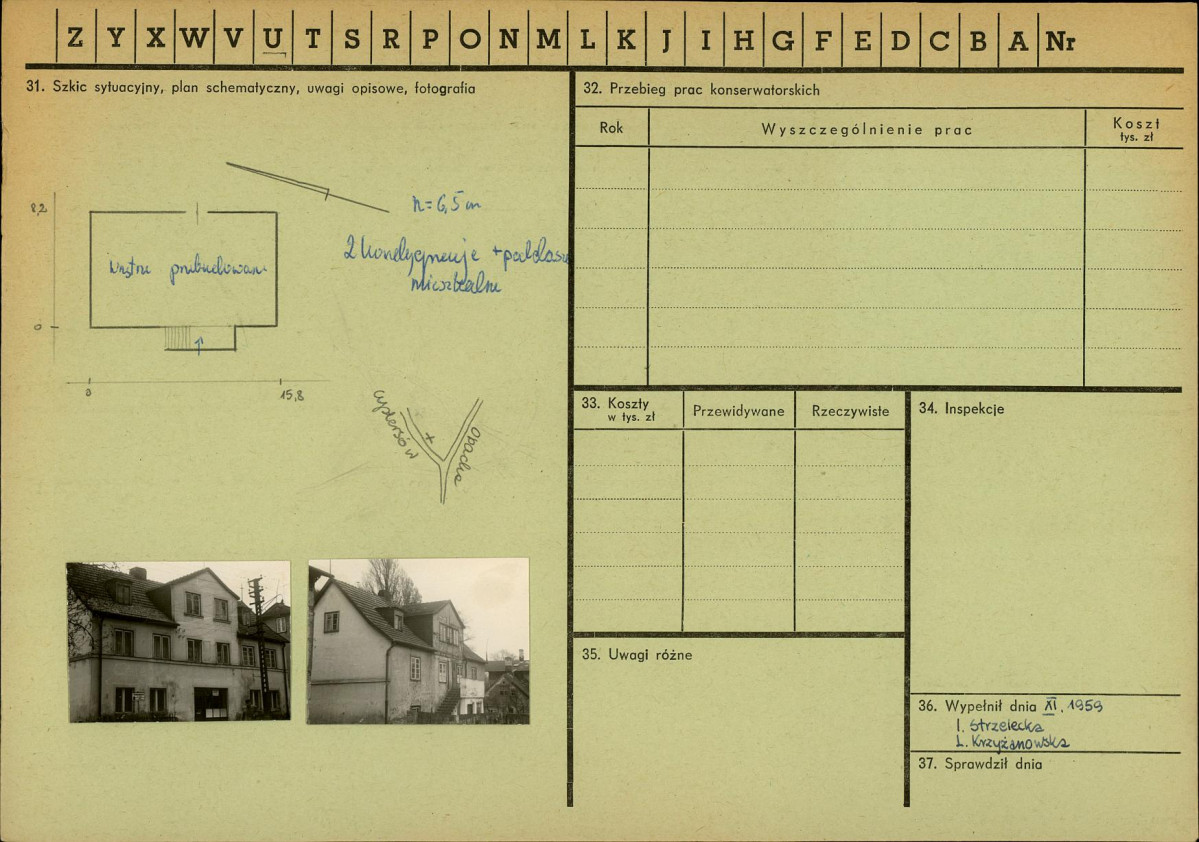 Z Y X W V U T S R P O N M L K J I H G F E D C B A Nr
31. Szkic sytuacyjny, plan schematyczny, uwagi opisowe, fotografia
8,2
h=6,5m
2 kondygnacje + poddasze
mieszkalne
Wnętrze przebudowane
0
0
15,8
Cystersów
Opacka
32. Przebieg prac konserwatorskich
Rok
Wyszczególnienie prac
Koszt
tys. zł
33. Koszty
w tys. zł
Przewidywane
Rzeczywiste
34. Inspekcje
35. Uwagi różne
36. Wypełnił dnia XI. 1959
I. Strzelecka
L. Krzyżanowska
37. Sprawdził dnia